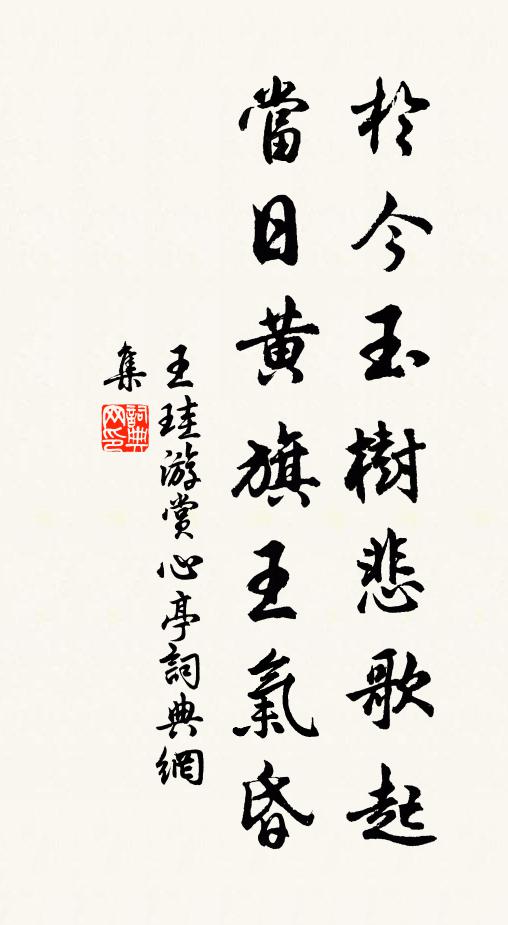 於今玉樹悲歌起
當日黃旗王氣昏
王珪游賞心亭詞典網
集
詞典
网印